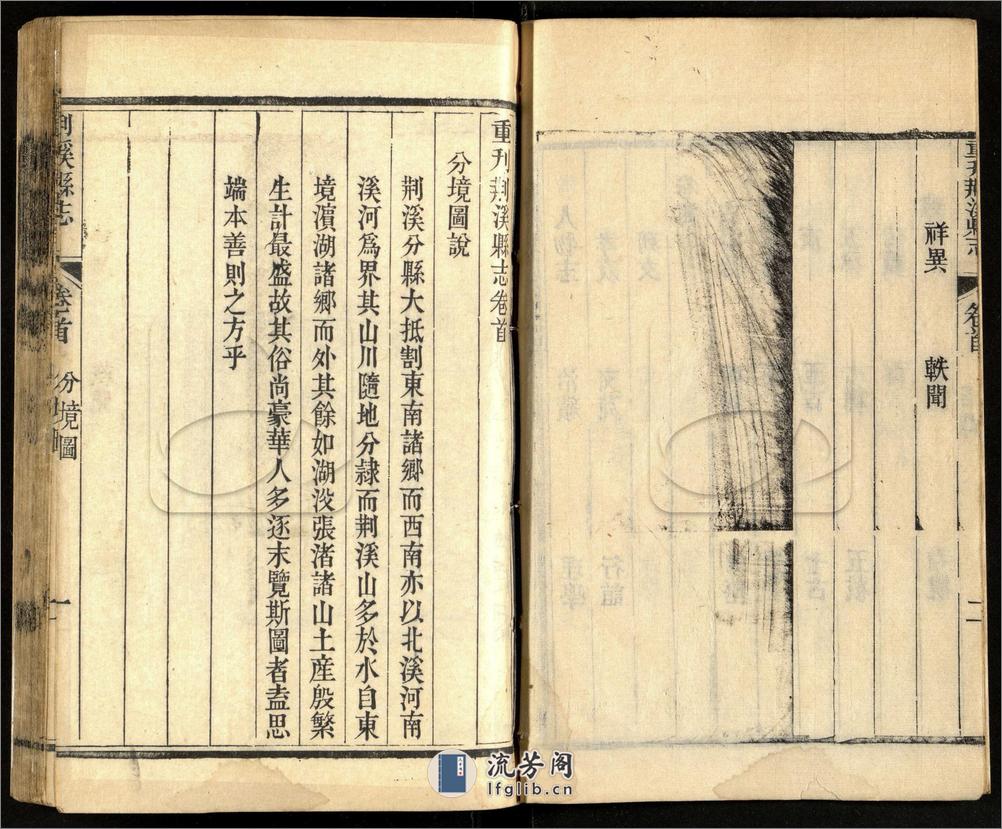 重刋荆溪縣志
卷首
二
祥異 軼聞
重刋荆溪縣志卷首
分境圖說
荆溪分縣大抵割東南諸鄉而西南亦以北溪河南
溪河爲界其山川隨地分隷而荆溪山多於水自東
境濵湖諸鄉而外其餘如湖㳇張渚諸山土産殷繁
生計最盛故其俗尚豪華人多逐末覽斯圖者盍思
端本善則之方乎
荆溪縣志
卷首
分境圖
一
流芳阁
lfglib.cn